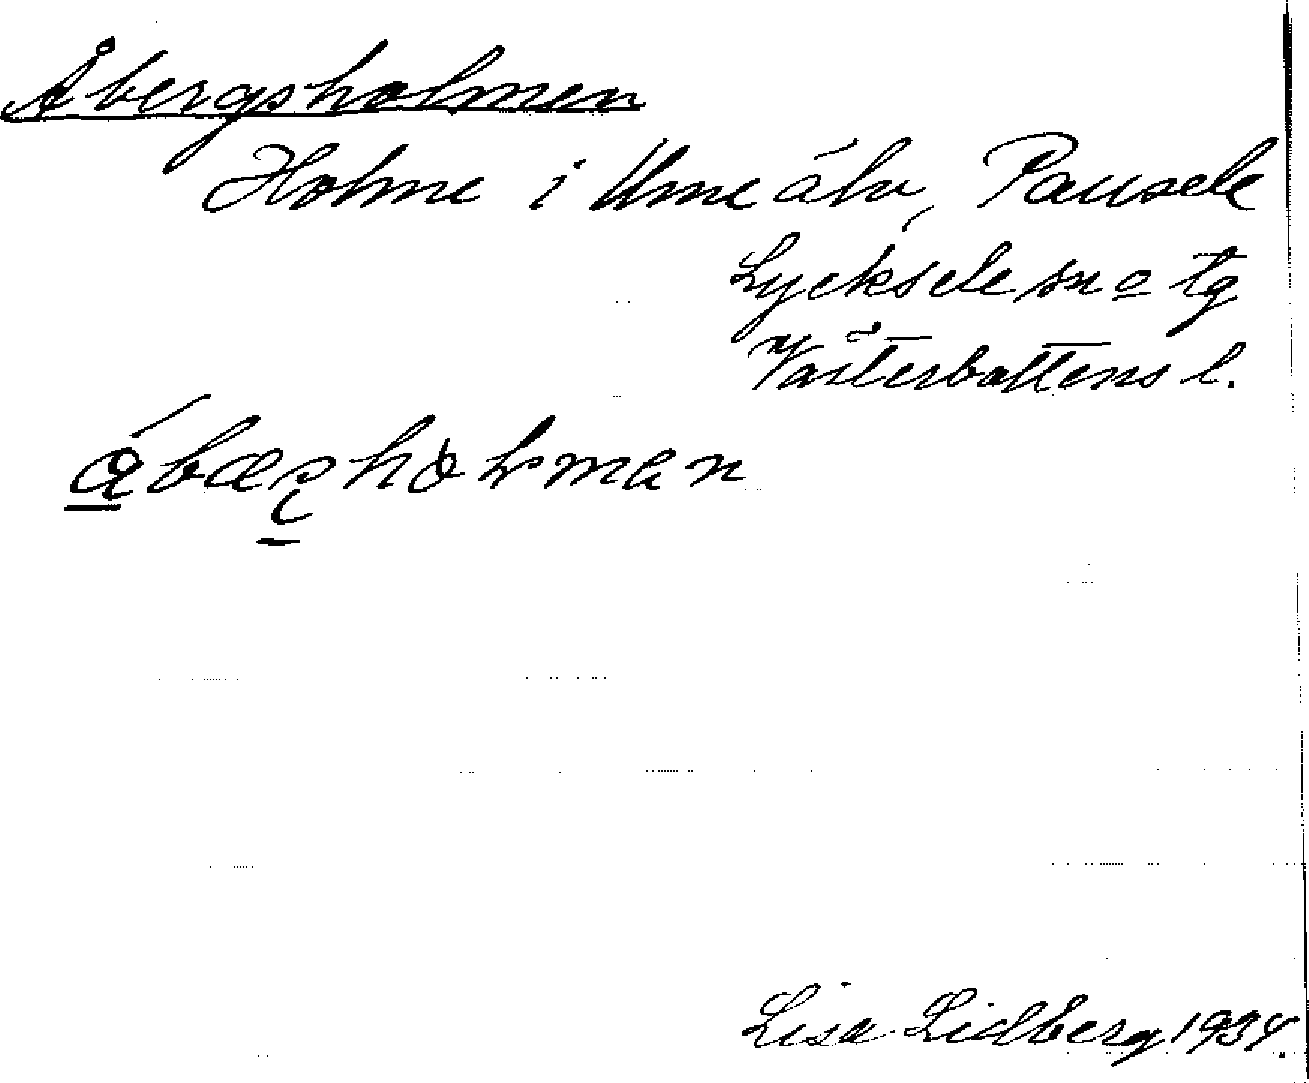 Åbergsholmen
Holme i Ume älv, Pausele
Lycksele sn o tg
Västerbottens l.
Lisa Lidberg 1934.